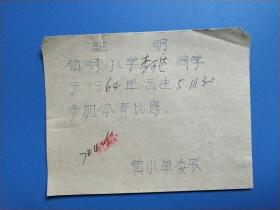 证 明
镇明小学李 同学
于1964年出生5月30
参加体育比赛
镇小革委